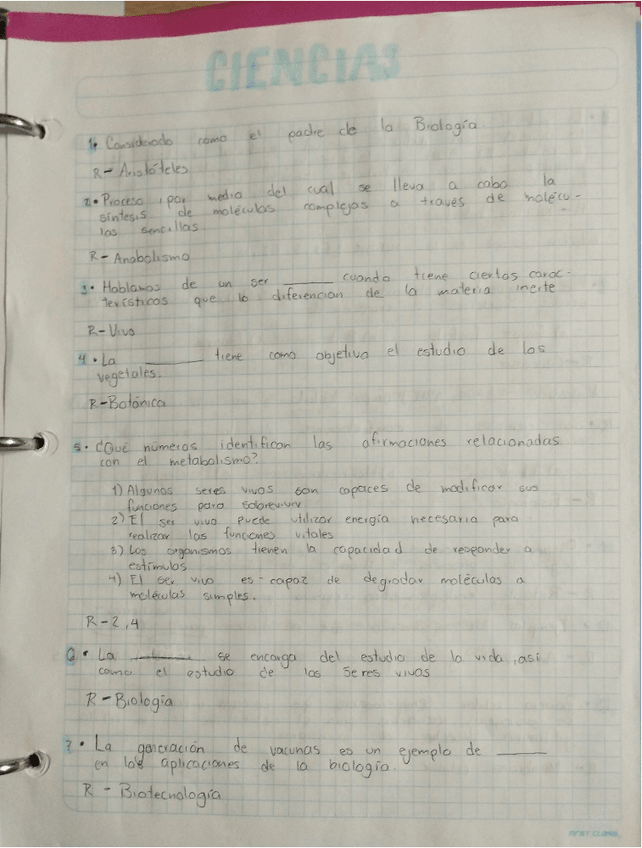 CIENCIAS
1• Considerado como el padre de la Biología
R- Aristóteles
2• Proceso por medio del cual se lleva a cabo la
síntesis de moléculas complejas a través de molécu-
las sencillas
R- Anabolismo
3• Hablamos de un ser ______ cuando tiene ciertas carac-
terísticas que lo diferencian de la materia inerte
R- Vivo
4• La ______ tiene como objetivo el estudio de los
vegetales.
R- Botánica
5• ¿Qué números identifican las afirmaciones relacionadas
con el metabolismo?
1) Algunos seres vivos son capaces de modificar sus
funciones para sobrevivir
2) El ser vivo puede utilizar energía necesaria para
realizar las funciones vitales
3) Los organismos tienen la capacidad de responder a
estímulos
4) El ser vivo es capaz de degradar moléculas a
moléculas simples.
R- 2,4
6• La ______ se encarga del estudio de la vida, así
como el estudio de los seres vivos
R- Biología
7• La generación de vacunas es un ejemplo de ______
en las aplicaciones de la biología.
R - Biotecnología